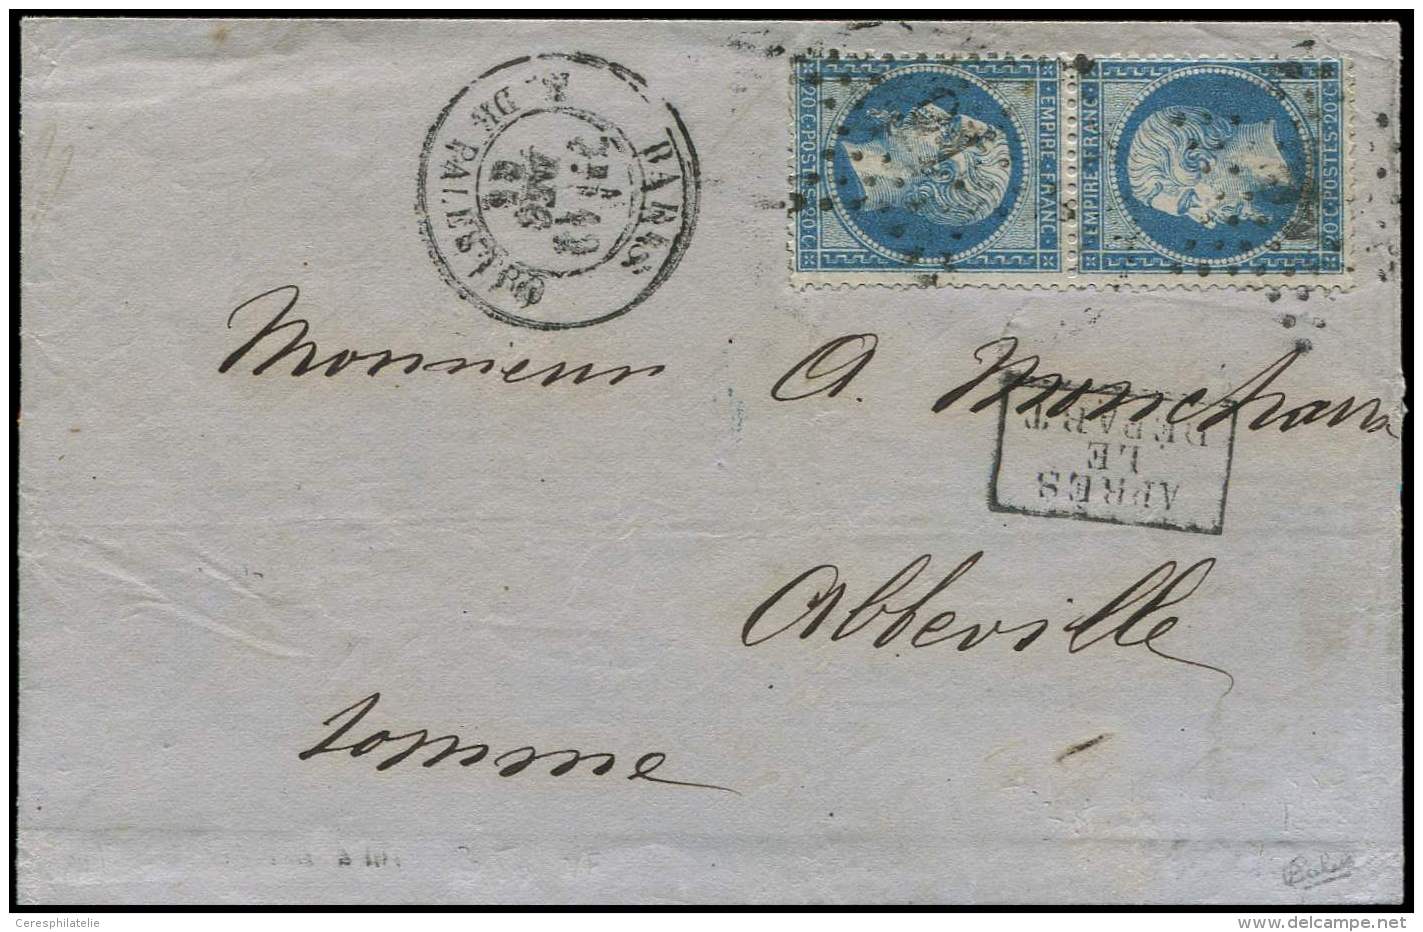 PARIS
R. DE PALESTRO
20 C·POSTES·20 C
EMPIRE·FRANC
EMPIRE·FRANC
20 C·POSTES·20 C
Monsieur A.
APRÈS
LE
DÉPART
Abbeville
Somme
Ceresphilatelie
www.delcampe.net